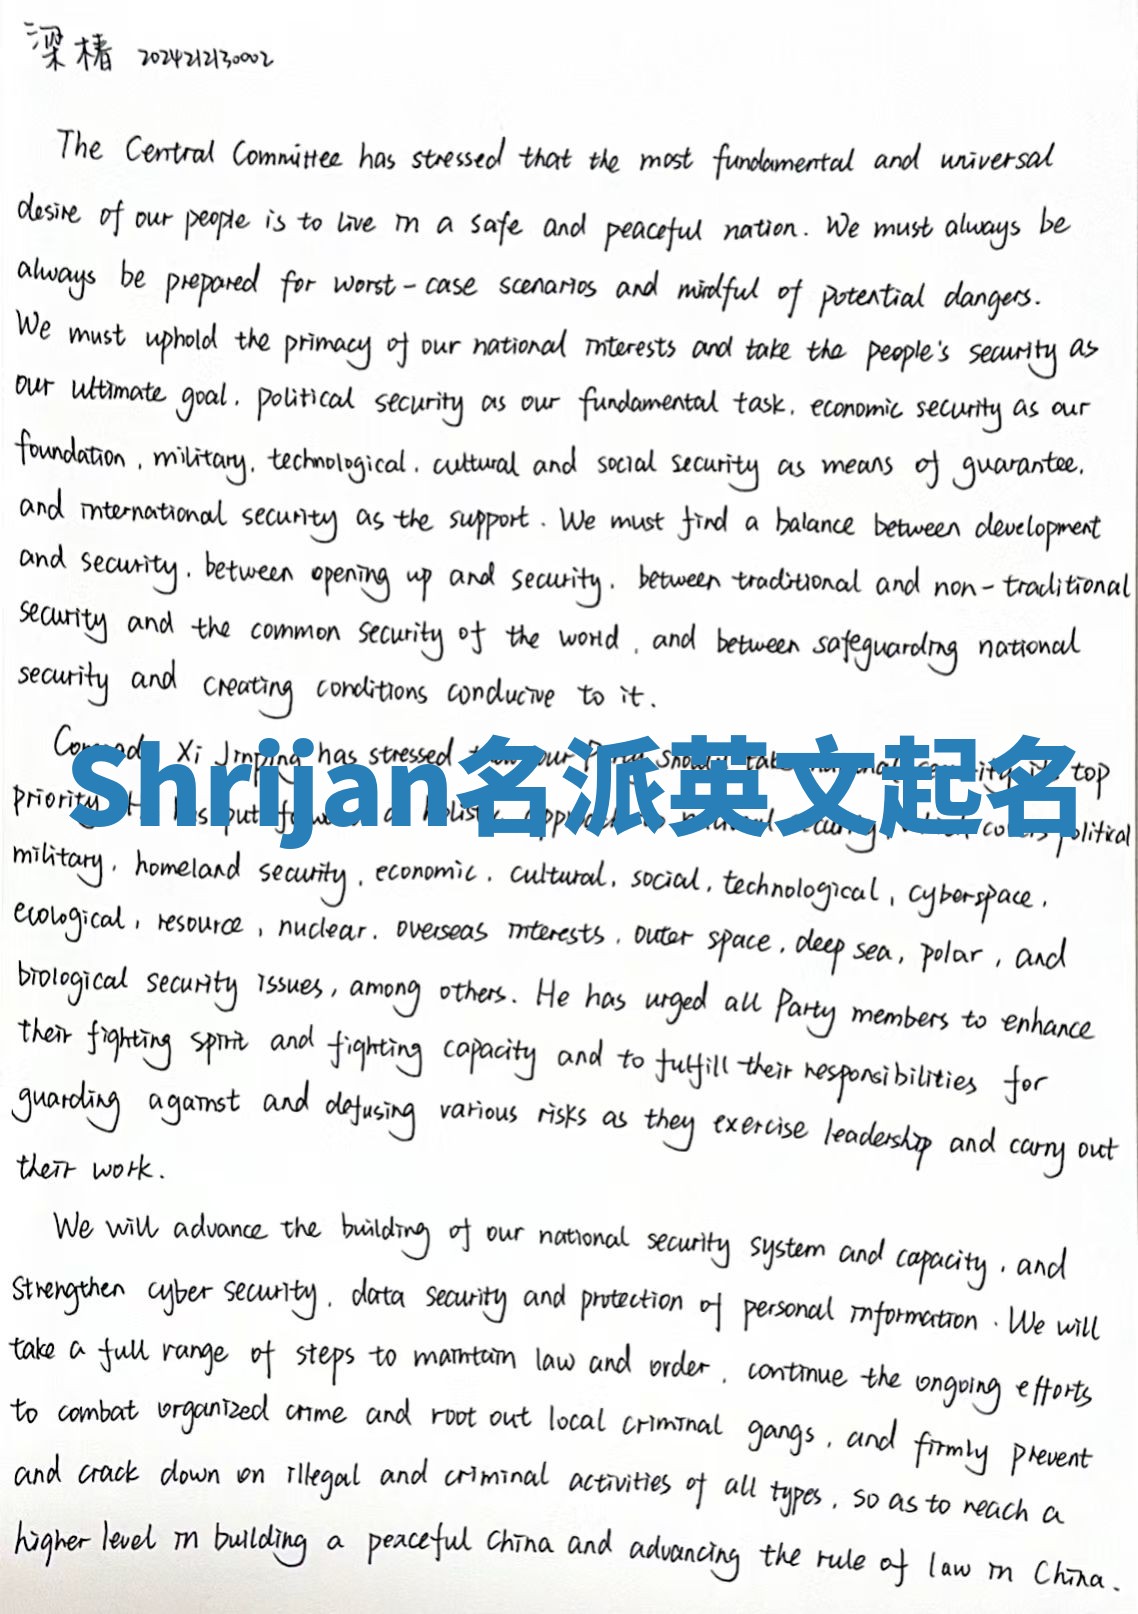 梁椿 2024212130002
The Central Committee has stressed that the most fundamental and universal
desire of our people is to live in a safe and peaceful nation. We must always be
always be prepared for worst-case scenarios and mindful of potential dangers.
We must uphold the primacy of our national interests and take the people's security as
our ultimate goal, political security as our fundamental task, economic security as our
foundation, military, technological, cultural and social security as means of guarantee,
and international security as the support. We must find a balance between development
and security, between opening up and security, between traditional and non-traditional
security and the common security of the world, and between safeguarding national
security and creating conditions conducive to it.
Xi Jinping has stressed our top
Shrijan名派英文起名
priority put political
military, homeland security, economic, cultural, social, technological, cyberspace,
ecological, resource, nuclear, overseas interests, outer space, deep sea, polar, and
biological security issues, among others. He has urged all Party members to enhance
their fighting spirit and fighting capacity and to fulfill their responsibilities for
guarding against and defusing various risks as they exercise leadership and carry out
their work.
We will advance the building of our national security system and capacity, and
strengthen cyber security, data security and protection of personal information. We will
take a full range of steps to maintain law and order, continue the ongoing efforts
to combat organized crime and root out local criminal gangs, and firmly prevent
and crack down on illegal and criminal activities of all types, so as to reach a
higher level in building a peaceful China and advancing the rule of law in China.